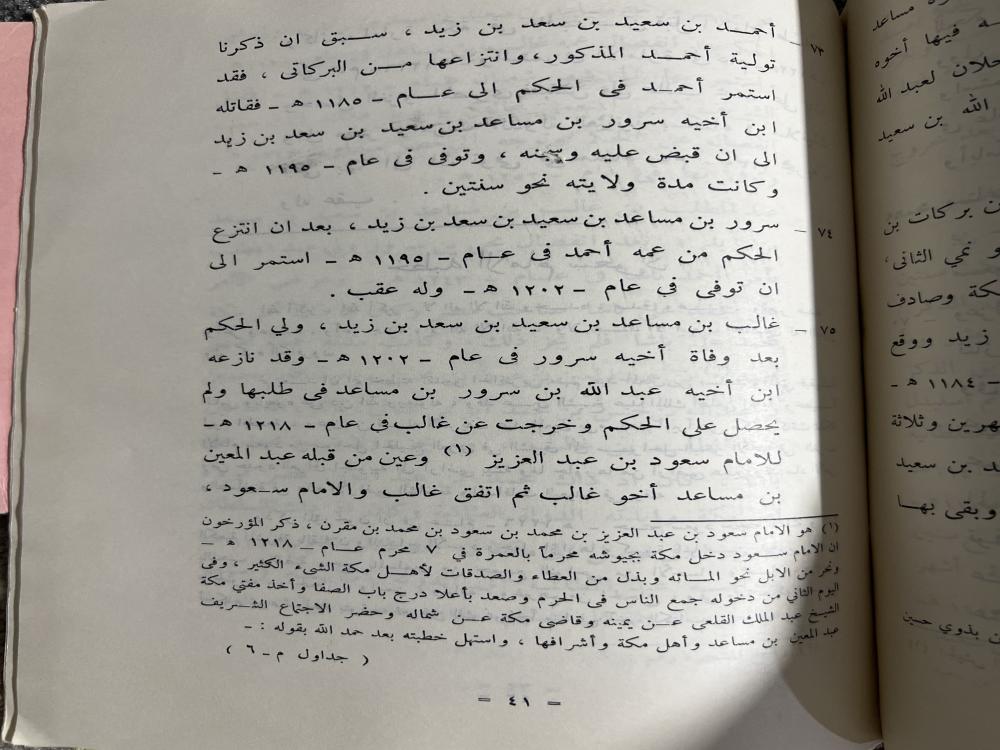 ٧٣ - أحمد بن سعيد بن سعد بن زيد ، سبق ان ذكرنا
تولية أحمد المذكور، وانتزاعها من البركاتى ، فقد
استمر أحمد فى الحكم الى عام - ١١٨٥ هـ - فقاتله
ابن أخيه سرور بن مساعد بن سعيد بن سعد بن زيد
الى ان قبض عليه وسجنه ، وتوفى فى عام - ١١٩٥ هـ -
وكانت مدة ولايته نحو سنتين .
٧٤ - سرور بن مساعد بن سعيد بن سعد بن زيد ، بعد ان انتزع
الحكم من عمه أحمد فى عام - ١١٩٥ هـ - استمر الى
ان توفى في عام - ١٢٠٢ هـ - وله عقب .
٧٥ - غالب بن مساعد بن سعيد بن سعد بن زيد ، ولي الحكم
بعد وفاة أخيه سرور فى عام - ١٢٠٢ هـ - وقد نازعه
ابن أخيه عبد الله بن سرور بن مساعد فى طلبها ولم
يحصل على الحكم وخرجت عن غالب فى عام - ١٢١٨ هـ -
للامام سعود بن عبد العزيز (١) وعين من قبله عبد المعين
بن مساعد أخو غالب ثم اتفق غالب والامام سعود ،
(١) هو الامام سعود بن عبد العزيز بن محمد بن سعود بن محمد بن مقرن ، ذكر المؤرخون
ان الامام سعود دخل مكة بجيوشه محرماً بالعمرة في ٧ محرم عام - ١٢١٨ هـ -
ونحر من الابل نحو المائه وبذل من العطاء والصدقات لأهل مكة الشىء الكثير ، وفى
اليوم الثاني من دخوله جمع الناس فى الحرم وصعد بأعلا درج باب الصفا وأخذ مفتي مكة
الشيخ عبد الملك القلعى عن يمينه وقاضى مكة عن شماله وحضر الاجتماع الشريف
عبد المعين بن مساعد وأهل مكة وأشرافها ، واستهل خطبته بعد حمد الله بقوله : -
( جداول م - ٦ )
= ٤١ =
مساعد
ـه فيها أخوه
حلان لعبد الله
الله بن سعيد
بن بركات بن
و نمي الثانى ،
مكة وصادف
زيد ووقع
- ١١٨٤ هـ -
هرين وثلاثة
ـد بن سعيد
وبقى بها
بذوي حسين